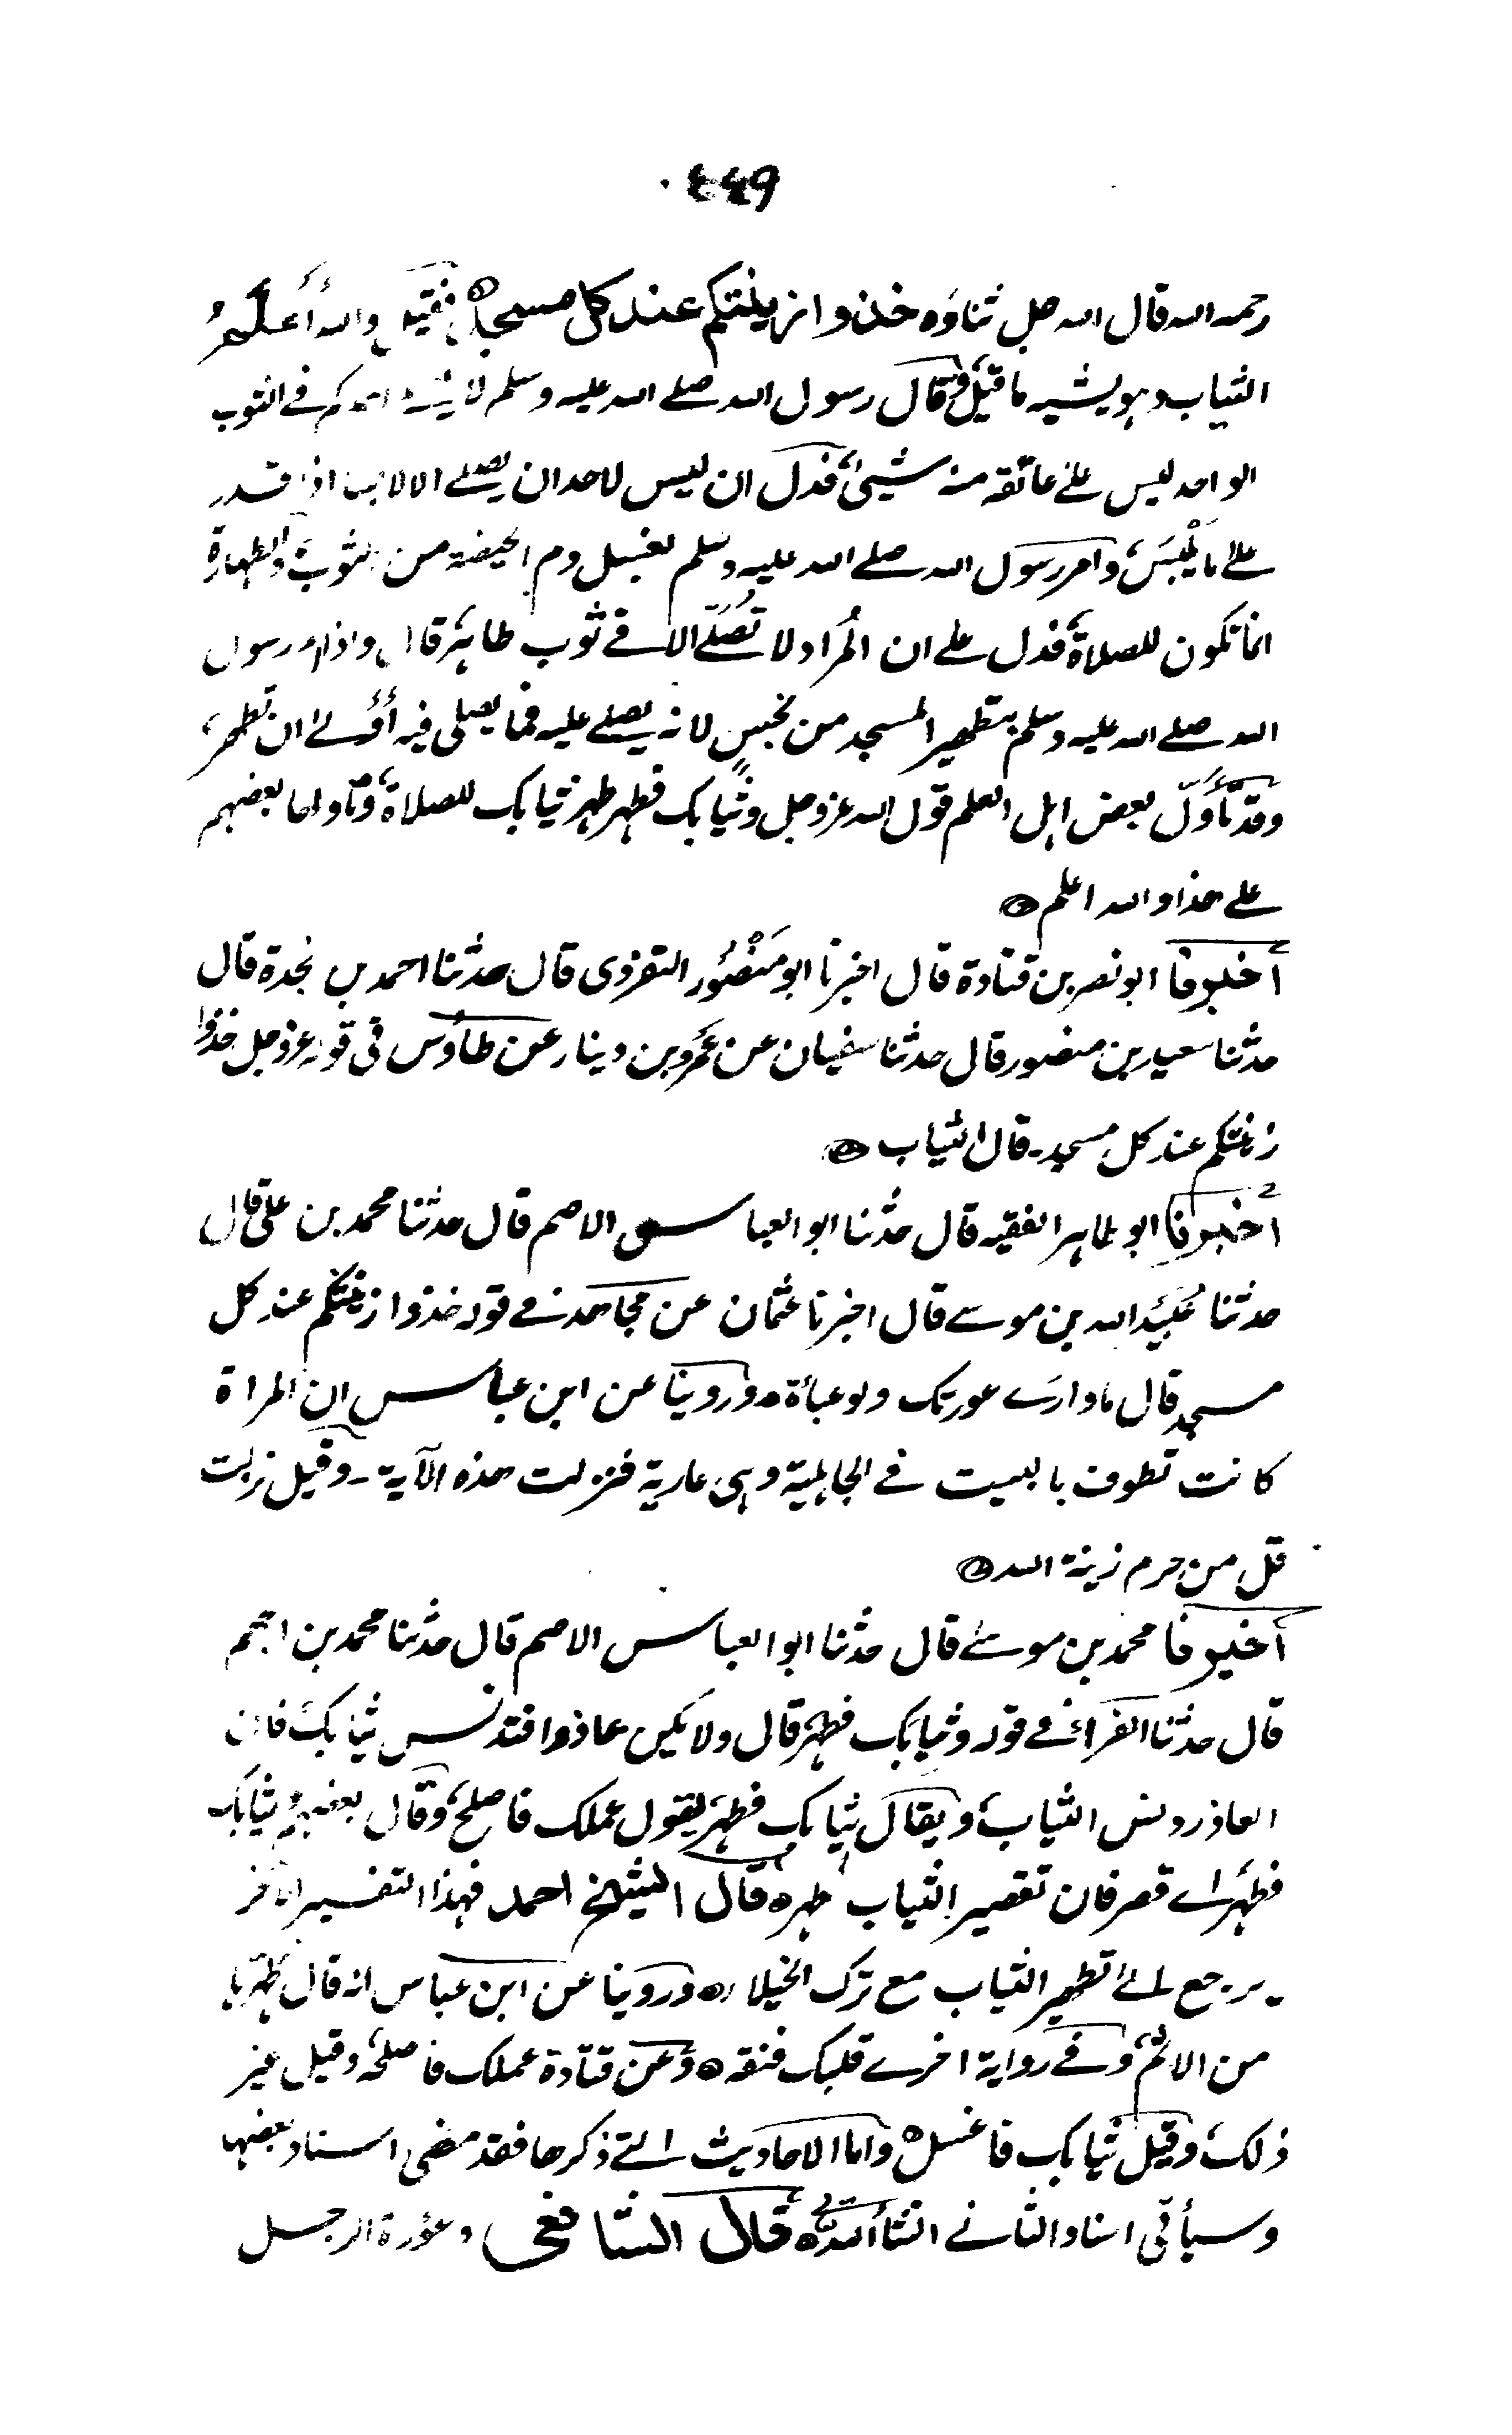 ٤٤٩
رحمه الله قال الله جل ثناؤه خذوا زينتكم عند كل مسجد فقيل والله أعلم
الثياب وهو يشبه ما قيل وقال رسول الله صلى الله عليه وسلم لا احدكم في الثوب
الواحد ليس على عاتقه منه شيئ فدل ان ليس لاحد ان يصلي الا لابسا اذا قدر
على ما يلبس وامر رسول الله صلى الله عليه وسلم بغسل دم الحيضة من الثوب والطهارة
انما تكون للصلاة فدل على ان المراد لا تُصلّى الا في ثوب طاهر قال واذا امر رسول
الله صلى الله عليه وسلم بتطهير المسجد من نجس لانه يصلى عليه فما يصلى فيه أولى ان تطهر
وقد تأوّل بعض اهل العلم قول الله عز وجل وثيابك فطهر طهر ثيابك للصلاة وتأولها بعضهم
على هذا والله اعلم
أخبرنا ابو نصر بن قتادة قال اخبرنا ابو منصور قال حدثنا احمد بن نجدة قال
حدثنا سعيد بن منصور قال حدثنا سفيان عن عمرو بن دينار عن طاؤس في قوله عز وجل خذوا
زينتكم عند كل مسجد۔ قال الثياب
أخبرنا ابو طاهر الفقيه قال حدثنا ابو العباس الاصم قال حدثنا محمد بن علي قال
حدثنا عُبَيد الله بن موسى قال اخبرنا عثمان عن مجاهد في قوله خذوا زينتكم عند كل
مسجد قال ما وارى عورتك ولو عباءة وروينا عن ابن عباس ان المراة
كانت تطوف بالبيت في الجاهلية وهي عارية فنزلت هذه الآية۔ وقيل نزلت
قل من حرم زينة الله
أخبرنا محمد بن موسى قال حدثنا ابو العباس الاصم قال حدثنا محمد بن الجهم
قال حدثنا الفراء في قوله وثيابك فطهر قال ولا يكن غادرا فتدنس ثيابك فان
الغادر دنس الثياب ويقال ثيابك فطهر يقول عملك فاصلح وقال بعضهم ثيابك
فطهر اى قصر فان تقصير الثياب طهره قال الشيخ احمد فهذا التفسير الآخر
يرجع الى تطهير الثياب مع ترك الخيلاء وروينا عن ابن عباس انه قال طهرها
من الاثم وفي رواية اخرى قلبك فنقه وعن قتادة عملك فاصلحه وقيل غير
ذلك وقيل ثيابك فاغسل واما الاحاديث التي ذكرها فقد مضى اسناد بعضها
وسيأتي اسناد الثاني انشأ الله قال الشافعي وعورة الرجل